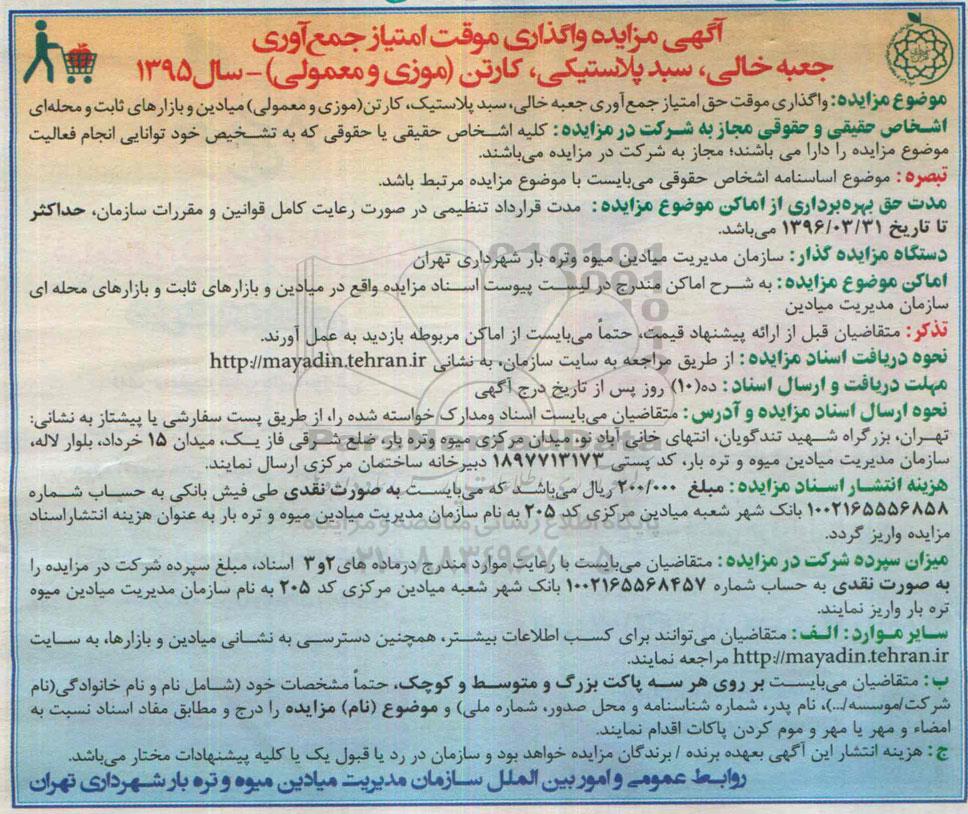 آگهی مزایده واگذاری موقت امتیاز جمع‌آوری
جعبه خالی، سبد پلاستیکی، کارتن (موزی و معمولی) - سال ۱۳۹۵
موضوع مزایده: واگذاری موقت حق امتیاز جمع‌آوری جعبه خالی، سبد پلاستیک، کارتن (موزی و معمولی) میادین و بازارهای ثابت و محله‌ای
اشخاص حقیقی و حقوقی مجاز به شرکت در مزایده: کلیه اشخاص حقیقی یا حقوقی که به تشخیص خود توانایی انجام فعالیت
موضوع مزایده را دارا می باشند؛ مجاز به شرکت در مزایده می‌باشند.
تبصره: موضوع اساسنامه اشخاص حقوقی می‌بایست با موضوع مزایده مرتبط باشد.
مدت حق بهره‌برداری از اماکن موضوع مزایده: مدت قرارداد تنظیمی در صورت رعایت کامل قوانین و مقررات سازمان، حداکثر
تا تاریخ ۱۳۹۶/۰۳/۳۱ می‌باشد.
دستگاه مزایده گذار: سازمان مدیریت میادین میوه وتره بار شهرداری تهران
اماکن موضوع مزایده: به شرح اماکن مندرج در لیست پیوست اسناد مزایده واقع در میادین و بازارهای ثابت و بازارهای محله ای
سازمان مدیریت میادین
تذکر: متقاضیان قبل از ارائه پیشنهاد قیمت، حتماً می‌بایست از اماکن مربوطه بازدید به عمل آورند.
نحوه دریافت اسناد مزایده: از طریق مراجعه به سایت سازمان، به نشانی http://mayadin.tehran.ir
مهلت دریافت و ارسال اسناد: ده(۱۰) روز پس از تاریخ درج آگهی
نحوه ارسال اسناد مزایده و آدرس: متقاضیان می‌بایست اسناد ومدارک خواسته شده را، از طریق پست سفارشی یا پیشتاز به نشانی:
تهران، بزرگراه شهید تندگویان، انتهای خانی آباد نو، میدان مرکزی میوه وتره بار، ضلع شرقی فاز یک، میدان ۱۵ خرداد، بلوار لاله،
سازمان مدیریت میادین میوه و تره بار، کد پستی ۱۸۹۷۷۱۳۱۷۳ دبیرخانه ساختمان مرکزی ارسال نمایند.
هزینه انتشار اسناد مزایده: مبلغ ۲۰۰/۰۰۰ ریال می‌باشد که می‌بایست به صورت نقدی طی فیش بانکی به حساب شماره
۱۰۰۲۱۶۵۵۵۶۸۵۸ بانک شهر شعبه میادین مرکزی کد ۲۰۵ به نام سازمان مدیریت میادین میوه و تره بار به عنوان هزینه انتشاراسناد
مزایده واریز گردد.
میزان سپرده شرکت در مزایده: متقاضیان می‌بایست با رعایت موارد مندرج درماده های ۲و۳ اسناد، مبلغ سپرده شرکت در مزایده را
به صورت نقدی به حساب شماره ۱۰۰۲۱۶۵۵۶۸۴۵۷ بانک شهر شعبه میادین مرکزی کد ۲۰۵ به نام سازمان مدیریت میادین میوه
تره بار واریز نمایند.
سایر موارد: الف: متقاضیان می‌توانند برای کسب اطلاعات بیشتر، همچنین دسترسی به نشانی میادین و بازارها، به سایت
http://mayadin.tehran.ir مراجعه نمایند.
ب: متقاضیان می‌بایست بر روی هر سه پاکت بزرگ و متوسط و کوچک، حتماً مشخصات خود (شامل نام و نام خانوادگی(نام
شرکت/موسسه/...)، نام پدر، شماره شناسنامه و محل صدور، شماره ملی) و موضوع (نام) مزایده را درج و مطابق مفاد اسناد نسبت به
امضاء و مهر یا مهر و موم کردن پاکات اقدام نمایند.
ج: هزینه انتشار این آگهی بعهده برنده / برندگان مزایده خواهد بود و سازمان در رد یا قبول یک یا کلیه پیشنهادات مختار می‌باشد.
روابط عمومی و امور بین الملل سازمان مدیریت میادین میوه و تره بار شهرداری تهران
ParsNamadData
پایگاه اطلاع رسانی مناقصه و مزایده